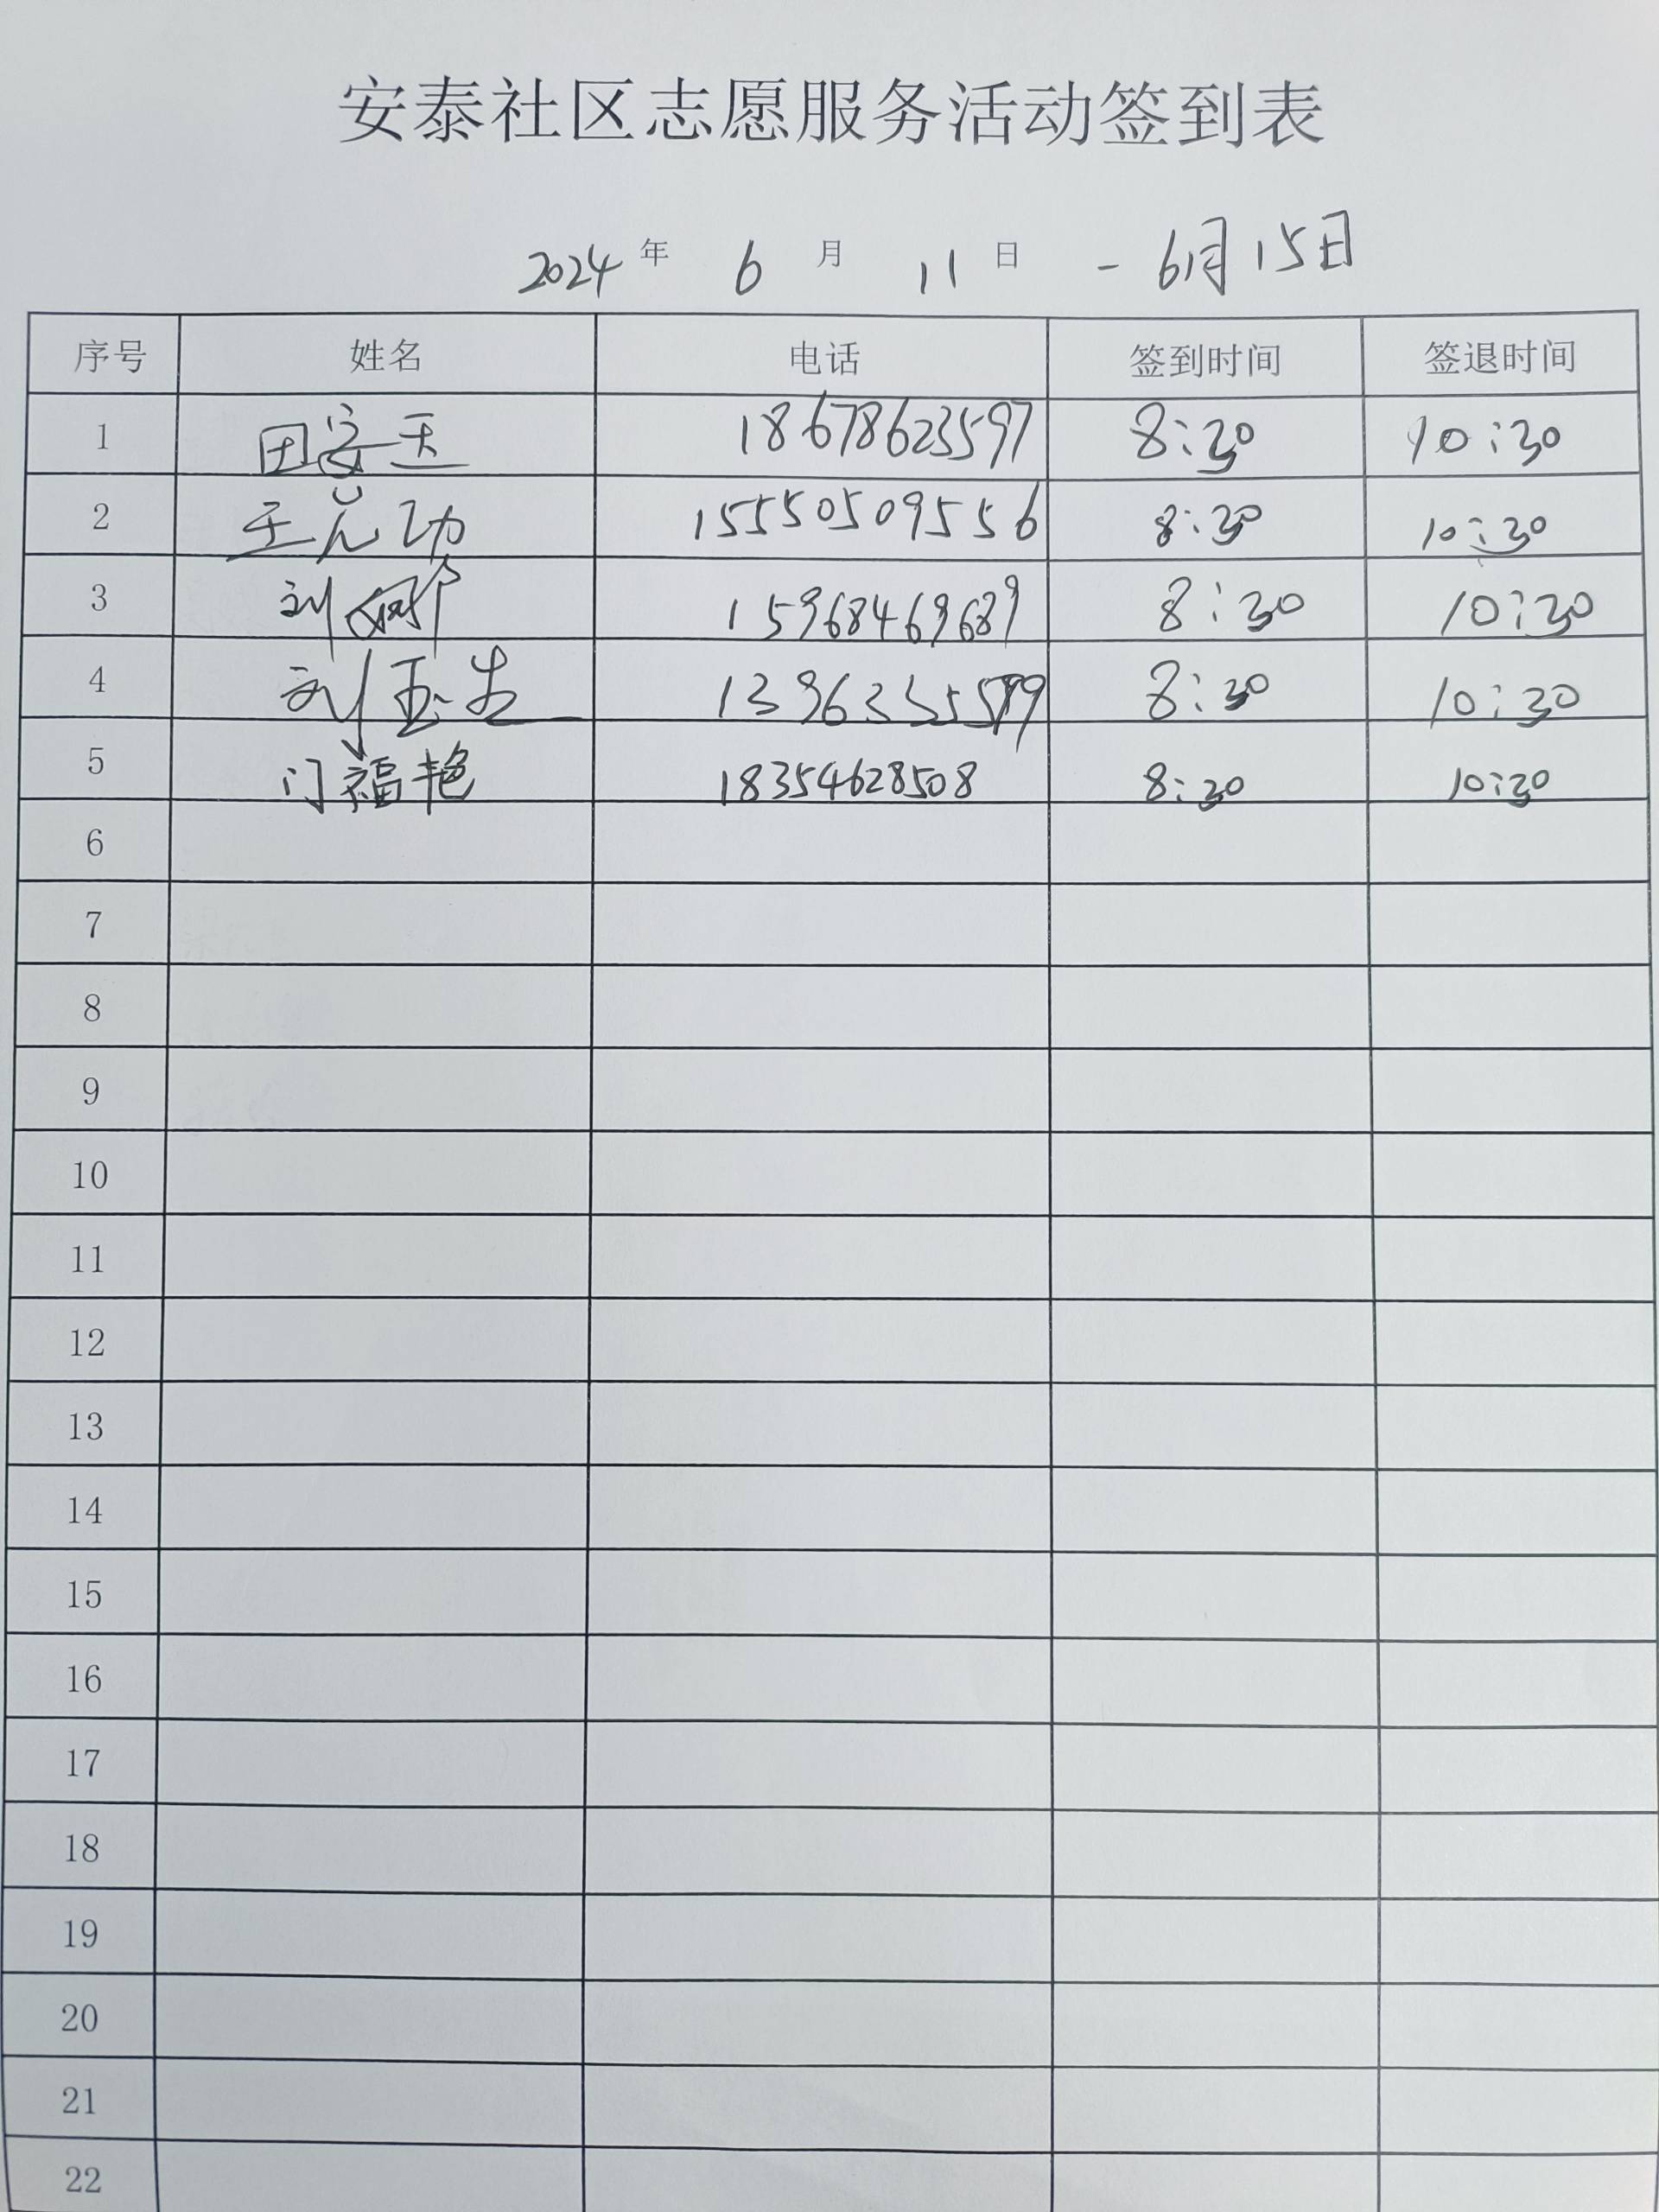 安泰社区志愿服务活动签到表
2024 年 6 月 11 日 - 6月15日
序号 姓名 电话 签到时间 签退时间
1 田 18678623597 8:30 10:30
2 王元功 15550509556 8:30 10:30
3 刘娜 15968469689 8:30 10:30
4 刘玉 8:30 10:30
5 门福艳 18354628508 8:30 10:30
6
7
8
9
10
11
12
13
14
15
16
17
18
19
20
21
22